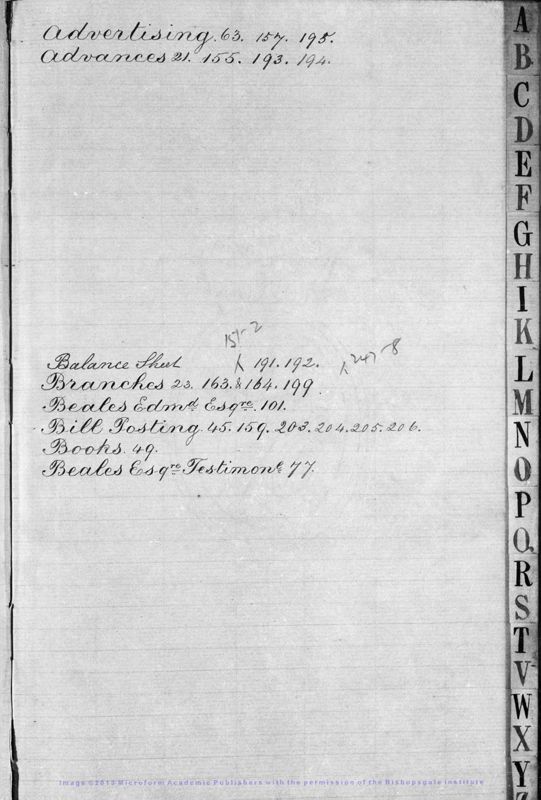 Advertising. 63. 157. 195.
Advances 21. 155. 193. 194.
151-2
Balance Sheet 191. 192. 247-8
Branches 23. 163. & 164. 199
Beales Edmd. Esqre. 101.
Bill Posting. 45. 159. 203. 204. 205. 206.
Books. 49.
Beales Esqre Testimonl 77.
A
B
C
D
E
F
G
H
I
K
L
M
N
O
P
Q
R
S
T
V
W
X
Y
Z
Image ©2013 Microform Academic Publishers with the permission of the Bishopsgate Institute